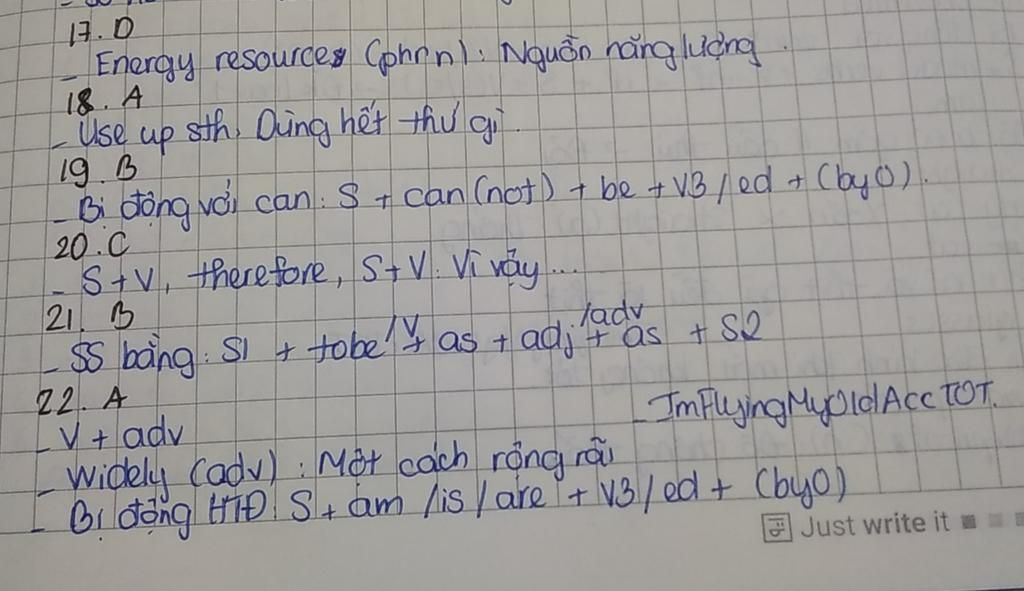 17. D
- Energy resources (phr n): Nguồn năng lượng.
18. A
- Use up sth: Dùng hết thứ gì.
19. B
- Bị động với can: S + can(not) + be + V3/ed + (by O).
20. C
- S + V, therefore, S + V: Vì vậy...
21. B
- SS bằng: S1 + tobe/V + as + adj/adv + as + S2
22. A
- ImFlyingMyOldAccTOT.
- V + adv
- Widely (adv): Một cách rộng rãi
- Bị động HTĐ: S + am/is/are + V3/ed + (by O)
Just write it